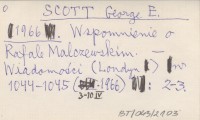 SCOTT George E.
1966. Wspomnienie o
Rafale Malczewskim. —
Wiadomości (Londyn) nr
1044-1045 (1966): 2-3.
3-10 IV
BT/043/2103